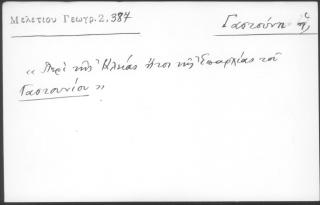 Μελετίου Γεωγρ. 2. 384
Γαστούνη ἡ
« Περὶ τῆς Ἠλείας ἤτοι τῆς Ἐπαρχίας τοῦ
Γαστουνίου »